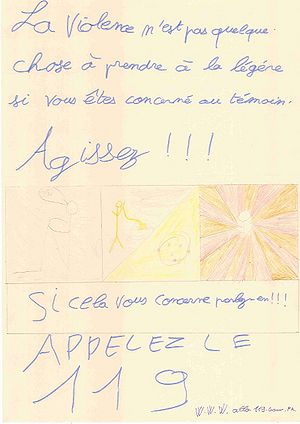 La Violence n'est pas quelque.
chose à prendre à la légére
si vous êtes concerné au témoin.
Agissez !!!
Si cela vous concerne parlez en!!!
APPELEZ LE
119
W.W.W. allo 119.